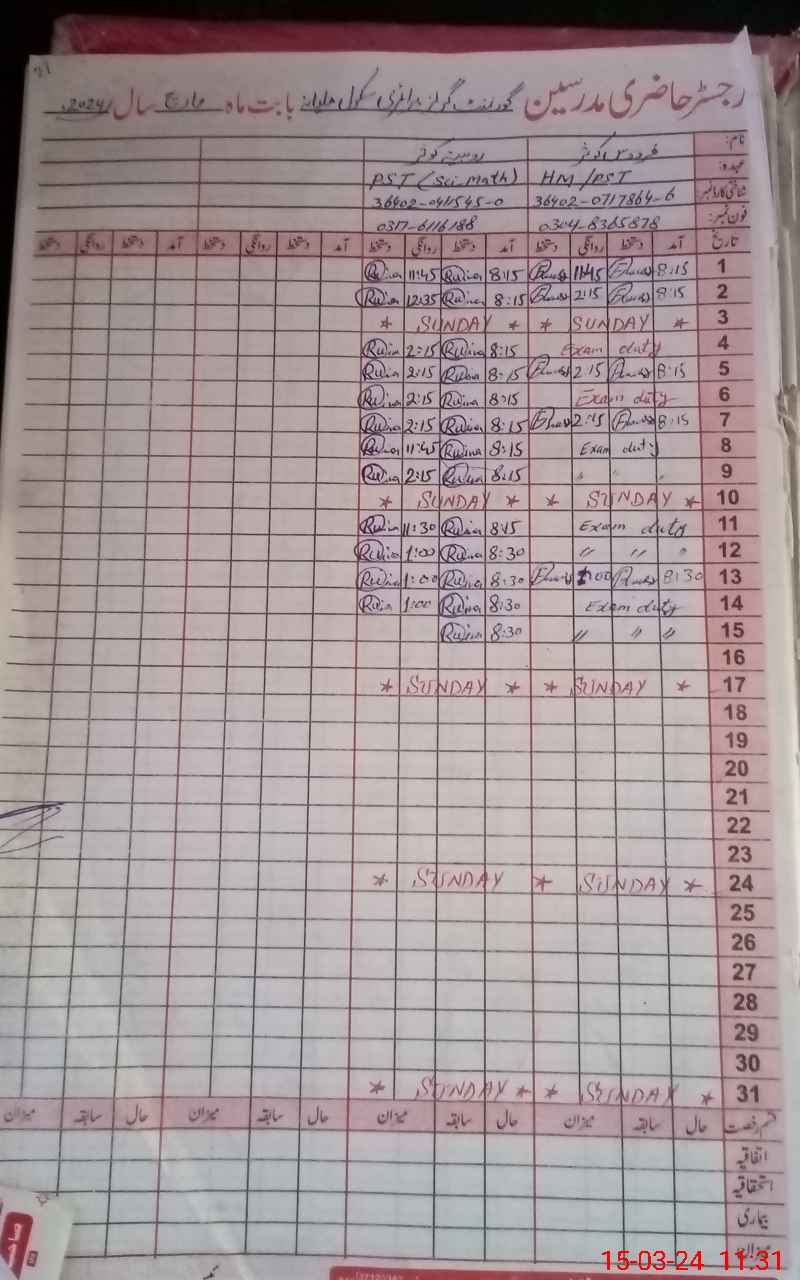 رجسٹر حاضری مدرسین گورنمنٹ گرلز پرائمری سکول بابت ماہ مارچ سال 2024ء
نام: فردوس کوثر روبینہ کوثر
عہدہ: HM/PST PST (Sci-Math)
شناختی کارڈ نمبر: 36402-0717864-6 36402-0411545-0
فون نمبر: 0304-8365878 0317-6116188
تاریخ آمد دستخط روانگی دستخط آمد دستخط روانگی دستخط آمد دستخط روانگی دستخط آمد دستخط روانگی دستخط
1 8:15 11:45 8:15 Rubina 11:45 Rubina
2 8:15 2:15 8:15 Rubina 12:35 Rubina
3 * SUNDAY * * SUNDAY *
4 Exam duty 8:15 Rubina 2:15 Rubina
5 8:15 2:15 8:15 Rubina 2:15 Rubina
6 Exam duty 8:15 Rubina 2:15 Rubina
7 8:15 2:15 8:15 Rubina 2:15 Rubina
8 Exam duty 8:15 Rubina 11:45 Rubina
9 " " " 8:15 Rubina 2:15 Rubina
10 * SUNDAY * * SUNDAY *
11 Exam duty 8:15 Rubina 11:30 Rubina
12 " " " 8:30 Rubina 1:00 Rubina
13 8:30 1:00 8:30 Rubina 1:00 Rubina
14 Exam duty 8:30 Rubina 1:00 Rubina
15 " " " 8:30 Rubina
16
17 * SUNDAY * * SUNDAY *
18
19
20
21
22
23
24 * SUNDAY * SUNDAY *
25
26
27
28
29
30
31 * SUNDAY * * SUNDAY *
قسم رخصت حال سابقہ میزان حال سابقہ میزان حال سابقہ میزان حال سابقہ میزان
اتفاقیہ
استحقاقیہ
بیماری
میزان
15-03-24 11:31